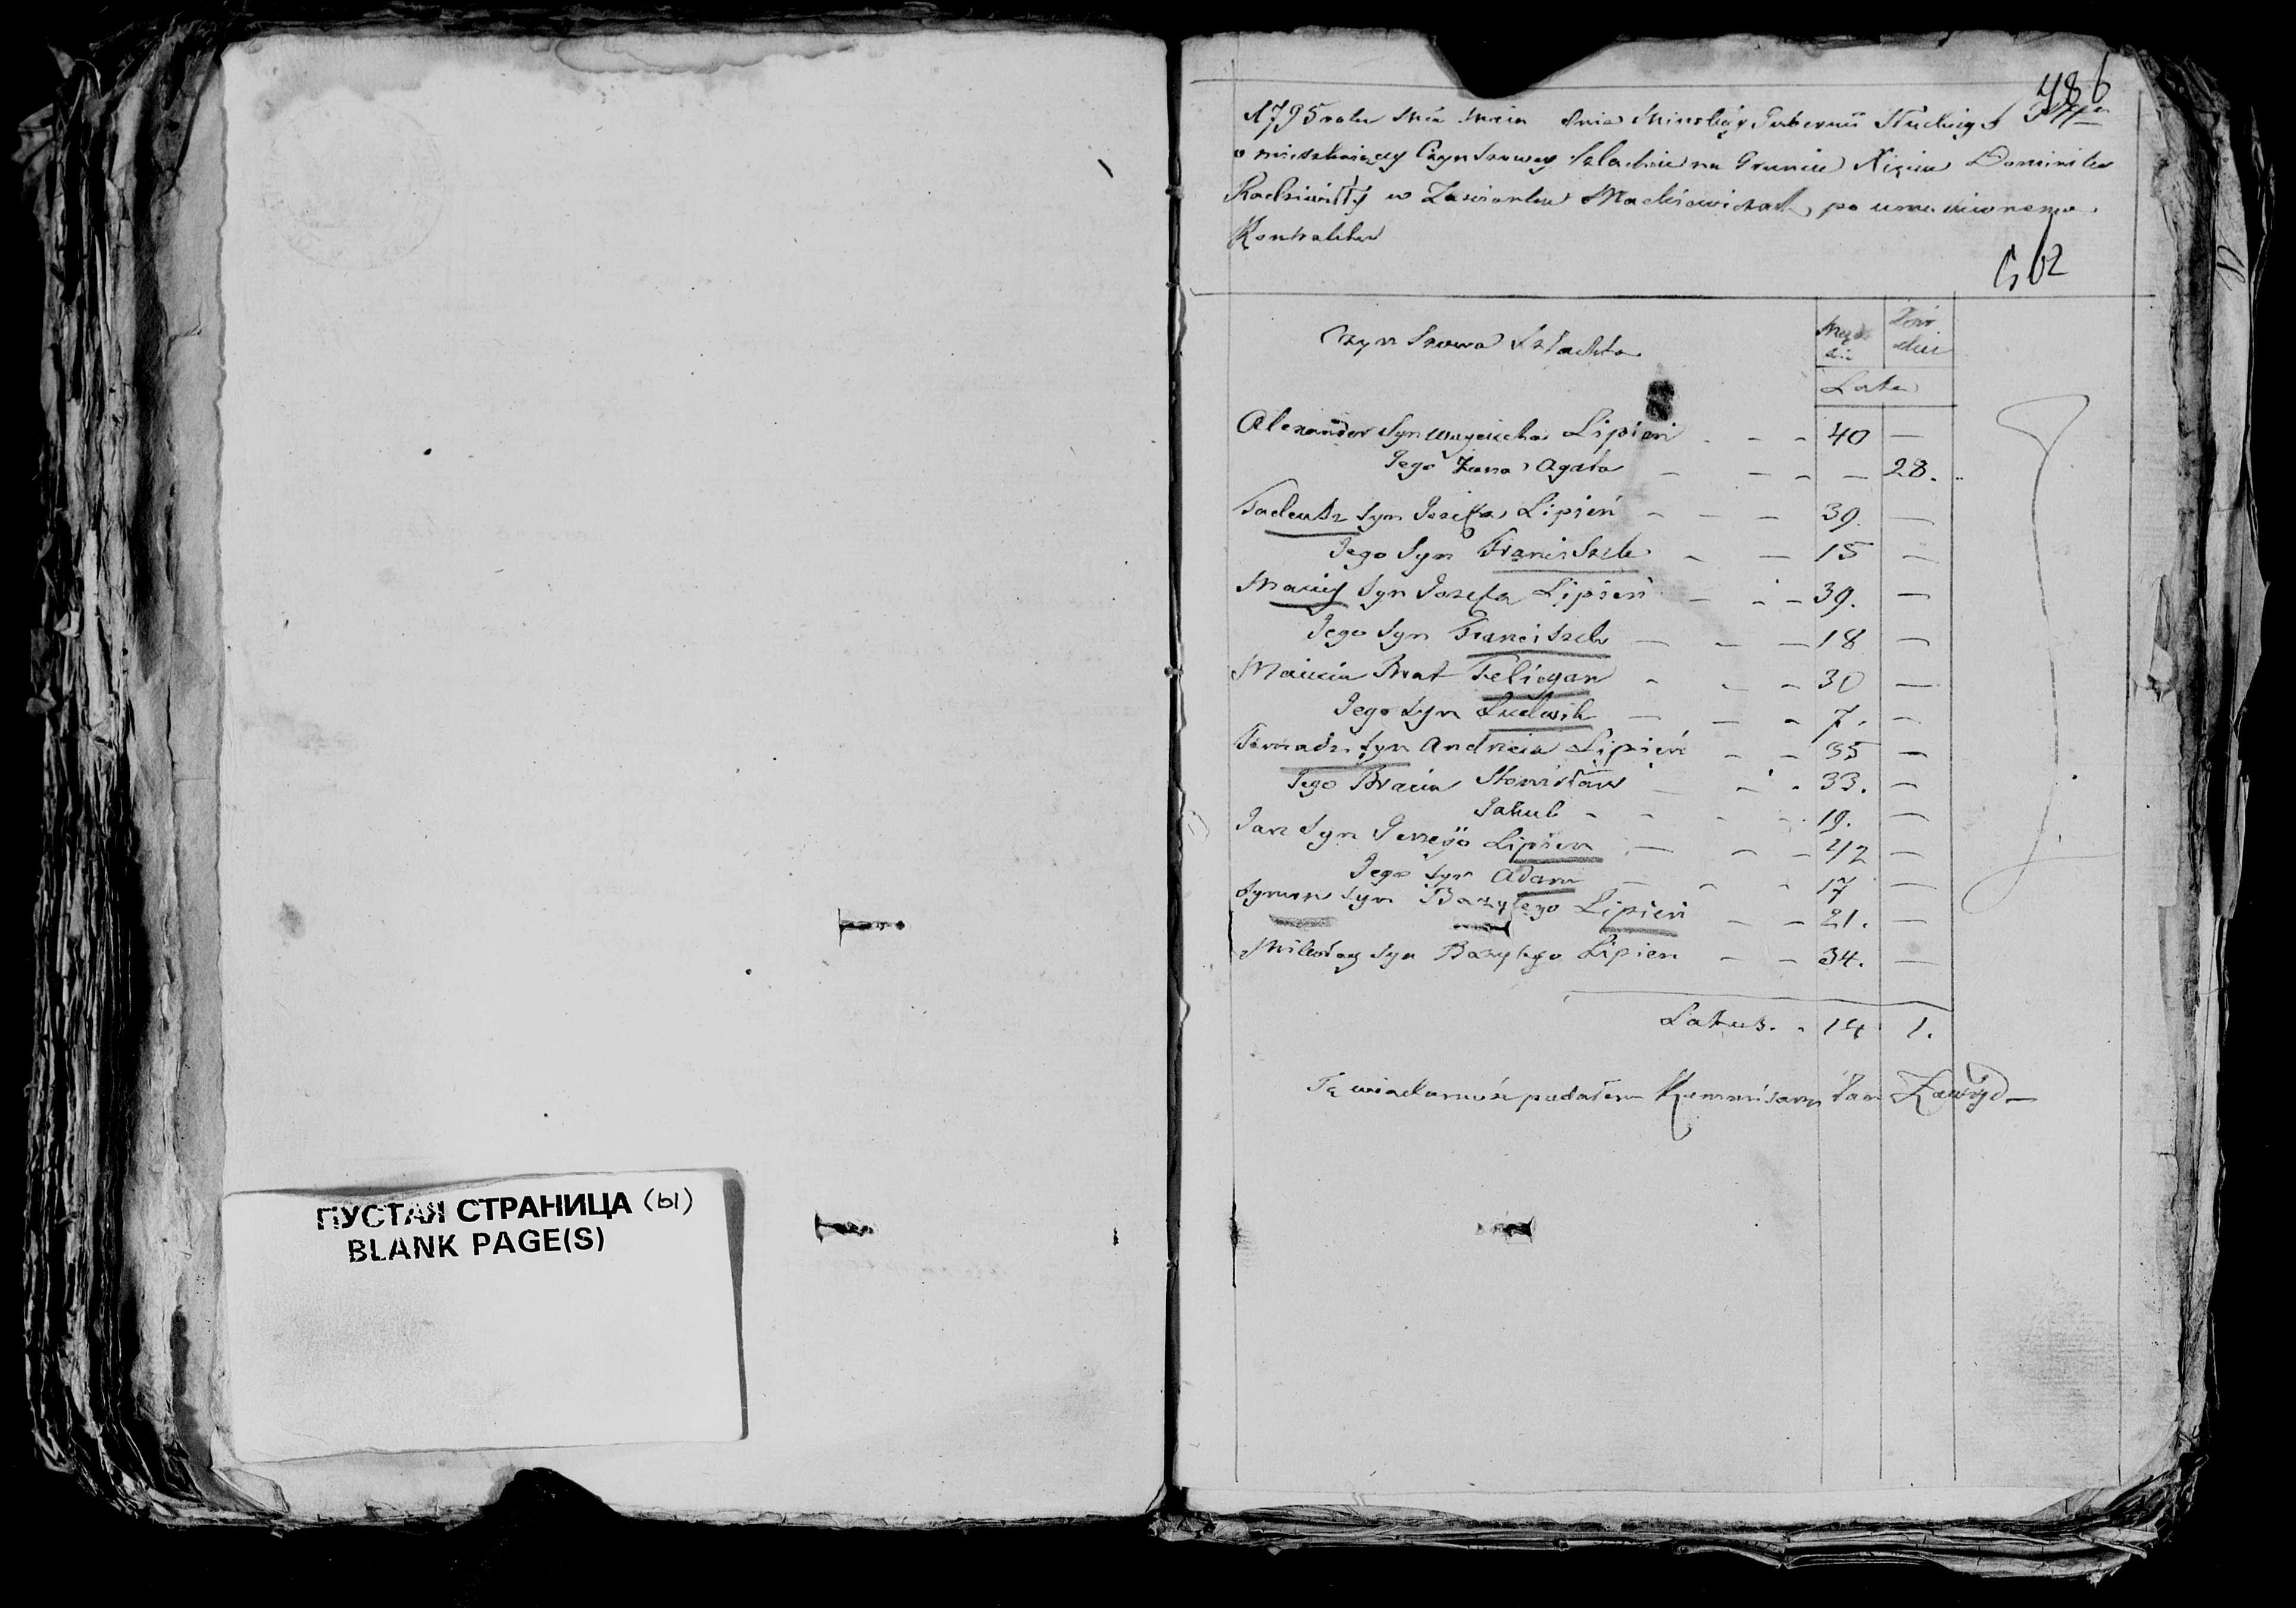 ПУСТАЯ СТРАНИЦА (ы)
BLANK PAGE(S)
486
1795 roku Mca Maia dnia Minskiey Gubernii Słuckiego
o mieszkaiący Czynszowey Szlachcie na Gruncie Xięcia Dominika
Radziwiłły w Zascianku Mackiewiczach, po
Kontraktu
Czynszowa Szlachta
Lata
Alexander Syn Woyciecha Lipień - - - 40 —
Jego Zona Agata - - - — 28.
Tadeusz Syn Jozefa Lipień - - - 39. —
Jego Syn Franciszek - - 15 —
Maciey Syn Jozefa Lipień - - - 39. —
Jego Syn Franciszek - - - 18 —
Macieia Brat Felicyan - - - 30 —
Jego Syn Ludwik - - - 7. —
Tomasz Syn Andrzeia Lipień - - 35 —
Jego Bracia Stanisław - - - 33. —
Jakub - - - - 19. —
Jan Syn Jerzego Lipien - - - 42 —
Jego Syn Adam - - - 17 —
Symon Syn Bazylego Lipień - - 21. —
Mikołay Syn Bazylego Lipien - - 34. —
Latus. - 14 1.
Tę wiadomość podałem Kommisarz Jan Zawisza